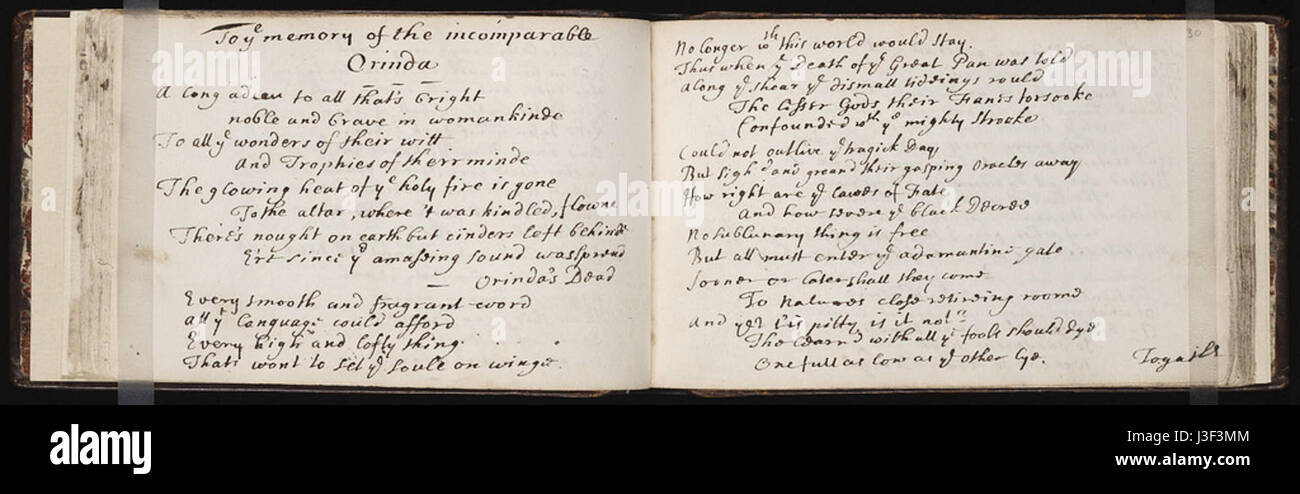 To yᵉ memory of the incomparable
Orinda
A long adieu to all that's bright
noble and brave in womankinde
To all yᵉ wonders of their witt
and Trophies of their minde
The glowing heat of yᵉ holy fire is gone
To the altar, where 't was kindled, flowne
There's nought on earth but cinders left behinde
Ere since yᵉ amazeing sound was spread
Orinda's Dead
Every smooth and fragrant word
all yᵉ language could afford
Every high and lofty thing
Thats wont to set yᵉ soule on winge
30
No longer wᵗʰ this world would stay.
Thus when yᵉ death of yᵉ Great Pan was told
along yᵉ shoar yᵉ dismall tideings rould
The lesser Gods their Fanes forsooke
Confounded wᵗʰ yᵉ mighty strooke
Could not outlive yᵉ tragick Day
But sigh'd and groand their gasping oracles away
How right are yᵉ lawes of Fate
and how severe yᵉ black Decree
No sublunary thing is free
But all must enter yᵉ adamantine gate
Sooner or later shall they come
To Natures close retireing roome
and yet t'is pitty, is it not
The learn'd with all yᵉ fools should dye
One full as low as yᵉ other lye.
alamy
alamy
Image ID: J3F3MM
www.alamy.com